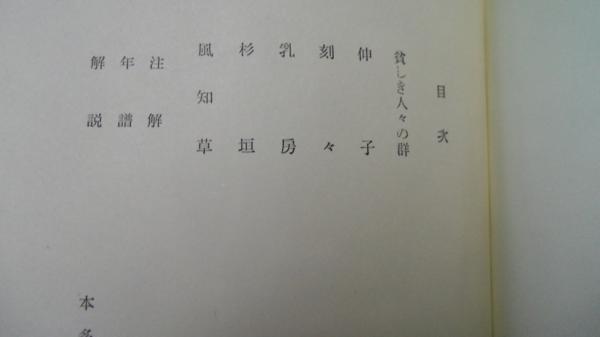 目次
貧しき人々の群
伸子
刻々
乳房
杉垣
風知草
注解
年譜
解説
本多